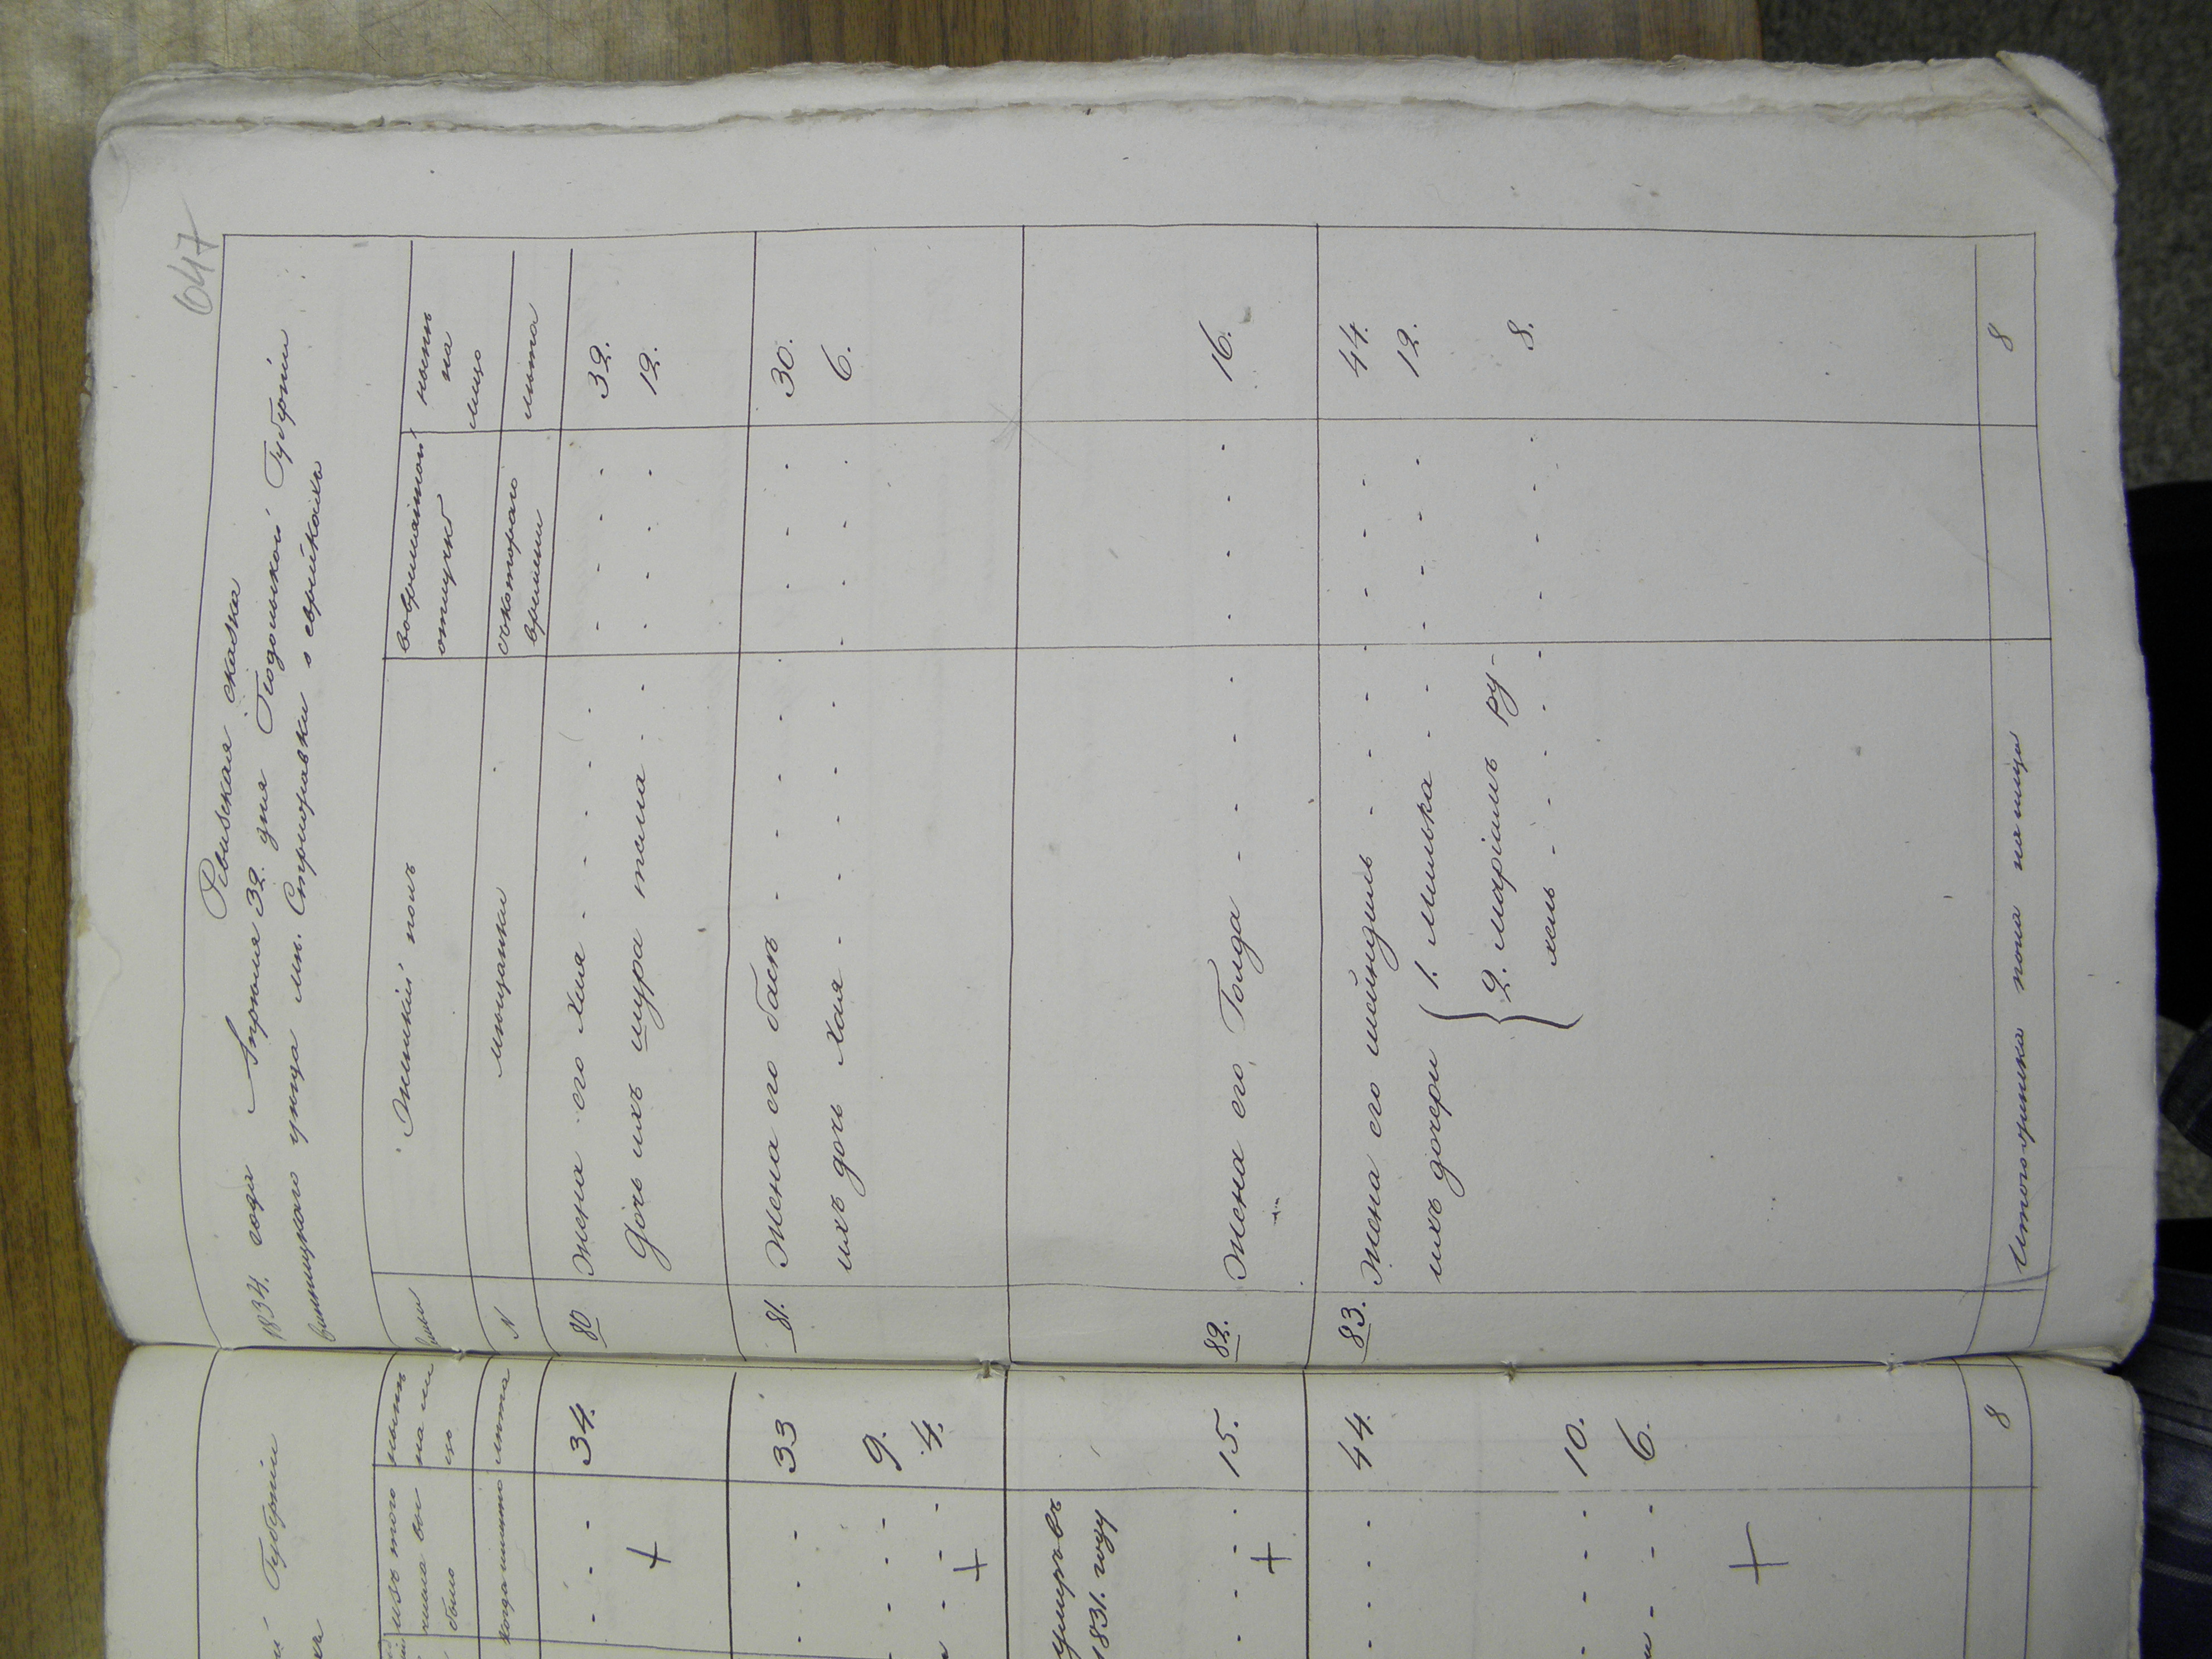 647
Ревизская сказка
1834. года Апреля 32. дня Подольской Губернiи
винницкаго уезда мѣ. Стрижавки о еврейкахъ
Женскiй полъ
вовременной отлучкѣ
нынѣ на лицо
N
мещанки
съкотораго времени
лѣта
80 Жена его Хая - - - - - - - 32.
Дочь ихъ шура тема - - - - - 12.
81. Жена его бася - - - - - - - 30.
ихъ дочь Хая - - - - - - - 6.
82. Жена его Голда - - - - - - - 16.
83. Жена его шейндель - - - - - - 44.
ихъ дочери { 1. милька - - - - - - 12.
2. марiамъ ру-
хель - - - - - - - 8.
Итого женска пола на лицо 8
Губернiи
изъ того числа выбыло
нынѣ на лицо
когда именно
лѣта
- - - 34.
+
- - - 33
- - - 9.
- - - 4.
+
умеръ въ
1831. году
- - - 15.
+
- - - 44.
- - - 10.
- - - 6.
+
8